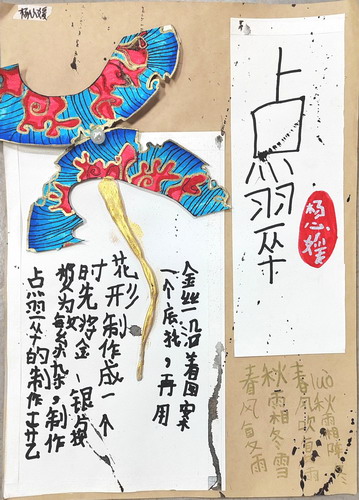 杨心媛
点翠
杨心媛
点翠的制作工艺
较为繁杂,制作
时先将金、银片按
制作成一个
一个底托,再用
金丝沿着图案
春风夏雨
秋霜冬雪
春风吹夏雨